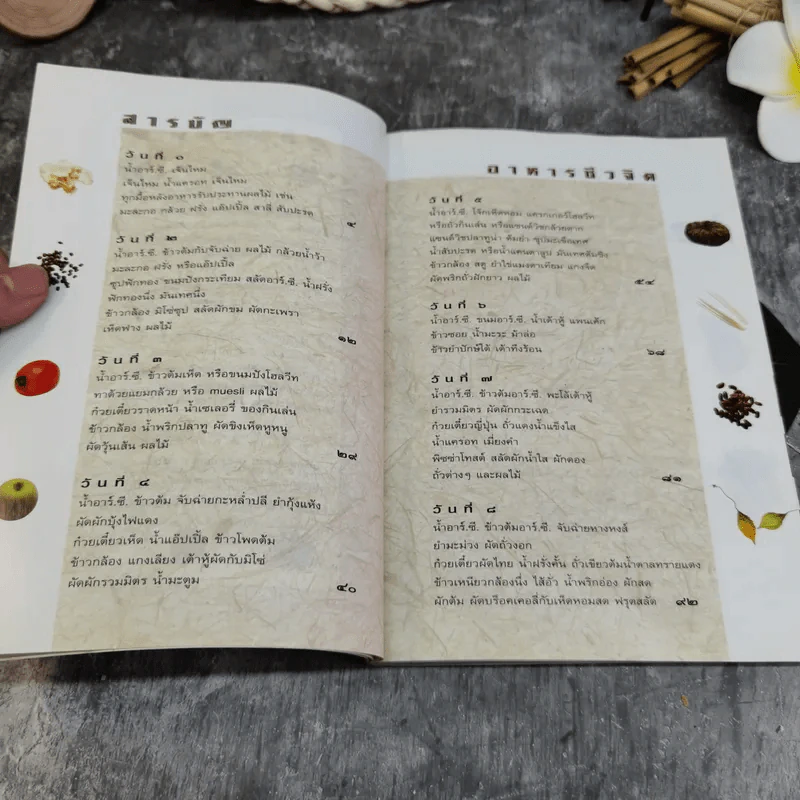 สารบัญ
วันที่ ๑
น้ำอาร์.ซี. เจ็นไหม
เจ็นไหม น้ำแครอท เจ็นไหม
ทุกมื้อหลังอาหารรับประทานผลไม้ เช่น
มะละกอ กล้วย ฝรั่ง แอ๊ปเปิ้ล สาลี่ สับปะรด
๙
วันที่ ๒
น้ำอาร์.ซี. ข้าวต้มกับจับฉ่าย ผลไม้ กล้วยน้ำว้า
มะละกอ ฝรั่ง หรือแอ๊ปเปิ้ล
ซุปฟักทอง ขนมปังกระเทียม สลัดอาร์.ซี. น้ำฝรั่ง
ฟักทองนึ่ง มันเทศนึ่ง
ข้าวกล้อง มิโซ่ซุป สลัดผักขม ผัดกะเพรา
เห็ดฟาง ผลไม้
๑๒
วันที่ ๓
น้ำอาร์.ซี. ข้าวต้มเห็ด หรือขนมปังโฮลวีท
ทาด้วยแยมกล้วย หรือ muesli ผลไม้
ก๋วยเตี๋ยวราดหน้า น้ำเซเลอรี่ ของกินเล่น
ข้าวกล้อง น้ำพริกปลาทู ผัดขิงเห็ดหูหนู
ผัดวุ้นเส้น ผลไม้
๒๙
วันที่ ๔
น้ำอาร์.ซี. ข้าวต้ม จับฉ่ายกะหล่ำปลี ยำกุ้งแห้ง
ผัดผักบุ้งไฟแดง
ก๋วยเตี๋ยวเห็ด น้ำแอ๊ปเปิ้ล ข้าวโพดต้ม
ข้าวกล้อง แกงเลียง เต้าหู้ผัดกับมิโซ่
ผัดผักรวมมิตร น้ำมะตูม
๔๐
อาหารชีวจิต
วันที่ ๕
น้ำอาร์.ซี. โจ๊กเห็ดหอม แครกเกอร์โฮลวีท
หรือถั่วกินเส้น หรือแซนด์วิชกล้วยตาก
แซนด์วิชปลาทูน่า ต้มยำ ซุปมะเขือเทศ
น้ำสับปะรด หรือน้ำแคนตาลูป มันเทศต้มขิง
ข้าวกล้อง สตู ยำไข่แมงดาเทียม แกงจืด
ผัดพริกถั่วฝักยาว ผลไม้
๕๔
วันที่ ๖
น้ำอาร์.ซี. ขนมอาร์.ซี. น้ำเต้าหู้ แพนเค้ก
ข้าวซอย น้ำมะระ ม้าฮ่อ
ข้าวยำปักษ์ใต้ เต้าทึงร้อน
๖๘
วันที่ ๗
น้ำอาร์.ซี. ข้าวต้มอาร์.ซี. พะโล้เต้าหู้
ยำรวมมิตร ผัดผักกระเฉด
ก๋วยเตี๋ยวญี่ปุ่น ถั่วแดงน้ำแข็งไส
น้ำแครอท เมี่ยงคำ
พิซซ่าโทสต์ สลัดผักน้ำใส ผักดอง
ถั่วต่างๆ และผลไม้
๘๑
วันที่ ๘
น้ำอาร์.ซี. ข้าวต้มอาร์.ซี. จับฉ่ายทางหงส์
ยำมะม่วง ผัดถั่วงอก
ก๋วยเตี๋ยวผัดไทย น้ำฝรั่งคั้น ถั่วเขียวต้มน้ำตาลทรายแดง
ข้าวเหนียวกล้องนึ่ง ไส้อั่ว น้ำพริกอ่อง ผักสด
ผักต้ม ผัดบร็อคเคอลี่กับเห็ดหอมสด ฟรุตสลัด
๙๒